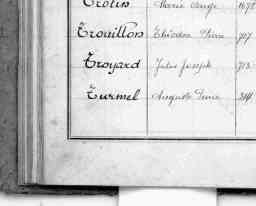 Trotin Marie Ange 1672
Trouillon Théodore Pierre 707
Troyard Jules Joseph 713
Turmel Auguste 344